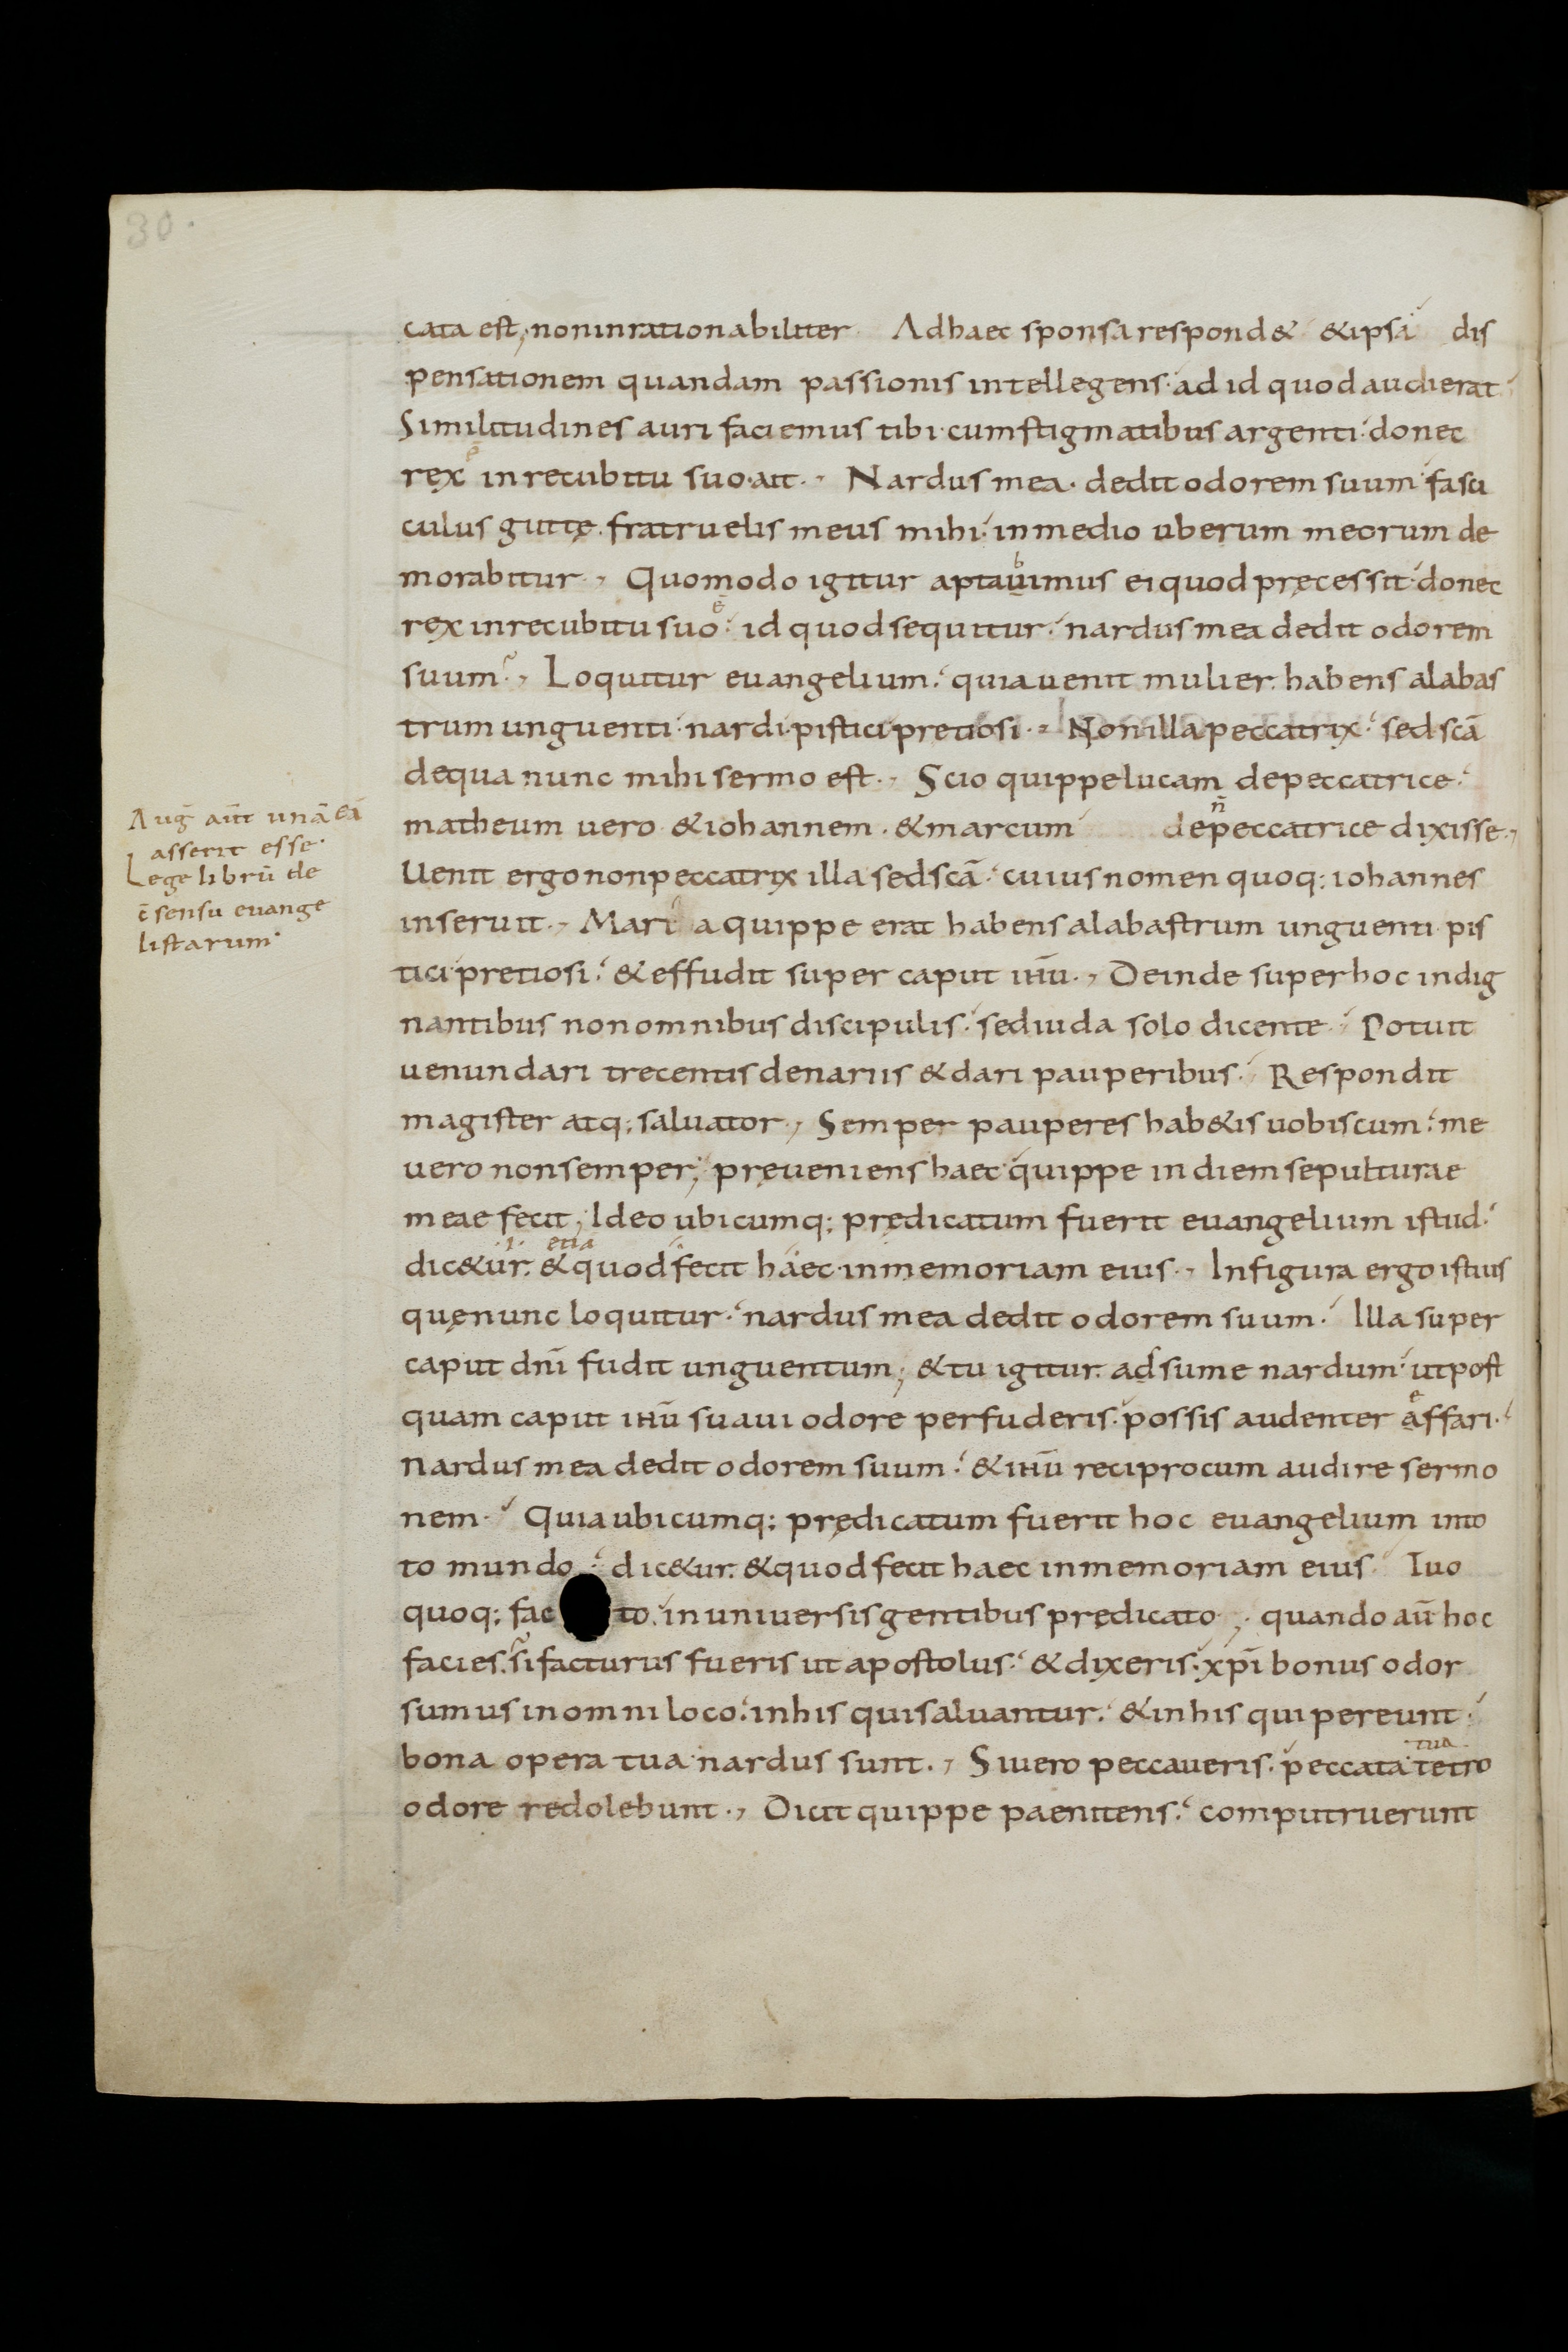 30.
cata est, non inrationabiliter. Ad haec sponsa respond& &ipsa dis
pensationem quandam passionis intellegens· ad id quod audierat·
Similitudines auri faciemus tibi· cum stigmatibus argenti· donec
ē
rex in recubitu suo· ait., Nardus mea· dedit odorem suum· fasci
culus guttę. fratruelis meus mihi· in medio uberum meorum de
b
morabitur., Quomodo igitur aptauimus ei quod pręcessit· donec
ē
rex in recubitu suo· id quod sequitur· nardus mea dedit odorem
suum., Loquitur euangelium· quia uenit mulier habens alabas
trum unguenti· nardi· pistici pretiosi., Non illa peccatrix· sed scā
de qua nunc mihi sermo est., Scio quippe lucam de peccatrice·
n̄
matheum uero &iohannem. &marcum de peccatrice dixisse.,
Uenit ergo non peccatrix illa sed scā· cuius nomen quoq; iohannes
inseruit., Maria quippe erat habens alabastrum unguenti pis
tici pretiosi· &effudit super caput ihū., Deinde super hoc indig
nantibus non omnibus discipulis· sed iuda solo dicente· Potuit
uenundari trecentis denariis &dari pauperibus· Respondit
magister atq; saluator., Semper pauperes hab&is uobiscum· me
uero non semper; pręueniens haec quippe in diem sepulturae
meae fecit, Ideo ubicumq; prędicatum fuerit euangelium istud·
·i· etiā
dic&ur. &quod fecit haec· in memoriam eius., In figura ergo istius
quę nunc loquitur· nardus mea dedit odorem suum· Illa super
caput dnī fudit unguentum; &tu igitur adsume nardum· ut post
e
quam caput ihū suaui odore perfuderis· possis audenter affari·
Nardus mea dedit odorem suum· &ihū reciprocum audire sermo
nem· Quia ubicumq; prędicatum fuerit hoc euangelium in to
to mundo· dic&ur. &quod fecit haec in memoriam eius· Tuo
quoq; fac to. in uniuersis gentibus prędicato., quando aū hoc
facies. si facturus fueris ut apostolus· &dixeris· xpī bonus odor
sumus in omni loco· in his qui saluantur· &in his qui pereunt·
tua
bona opera tua nardus sunt., Si uero peccaueris. peccata tetro
odore redolebunt., Dicit quippe paenitens· computruerunt
Auḡ aūt unā eā
asserit esse·
Lege librū de
c̄sensu euange
listarum·